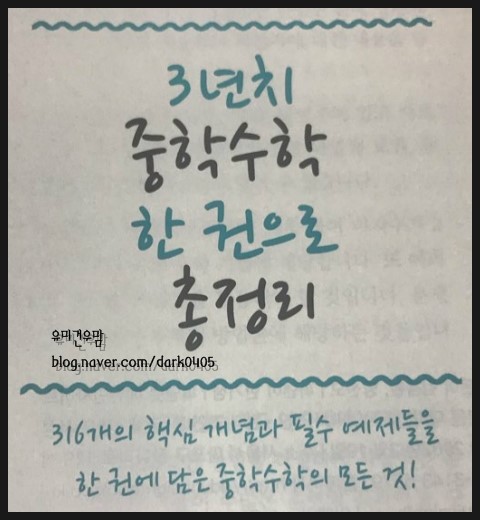 3년치
중학수학
한 권으로
총정리
유미건우맘
blog.naver.com/dark0405
316개의 핵심 개념과 필수 예제들을
한 권에 담은 중학수학의 모든 것!